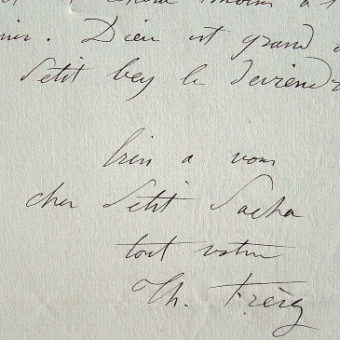 . Dieu est grand
Petit bey le deviendr
bien a vous
cher Petit Pacha
tout votre
Th. Frère